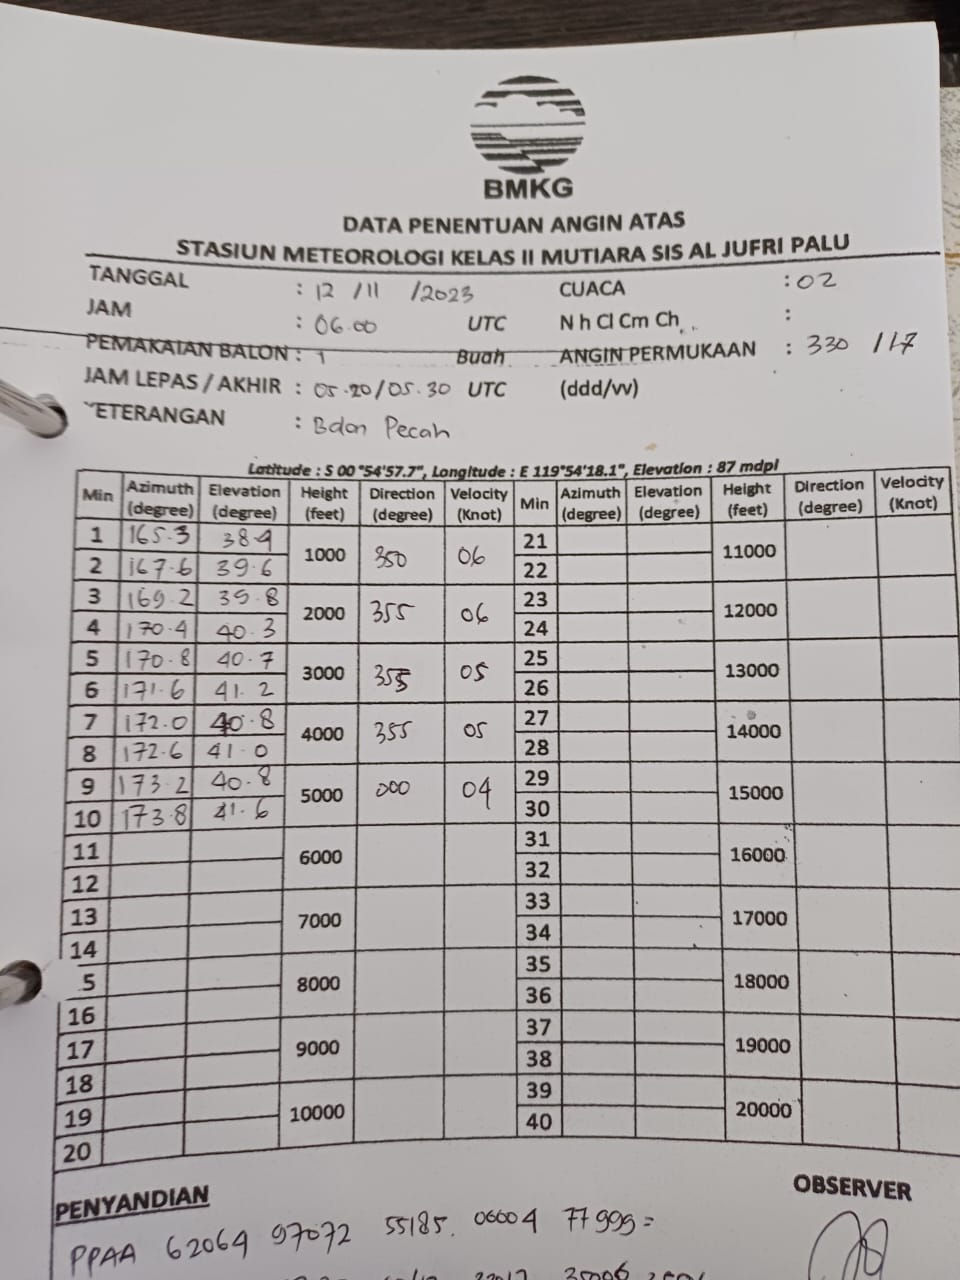 BMKG
DATA PENENTUAN ANGIN ATAS
STASIUN METEOROLOGI KELAS II MUTIARA SIS AL JUFRI PALU
TANGGAL : 12 /11 /2023 CUACA : 02
JAM : 06.00 UTC N h Cl Cm Ch :
PEMAKAIAN BALON : 1 Buah ANGIN PERMUKAAN : 330 / 17
JAM LEPAS / AKHIR : 05.20/05.30 UTC (ddd/vv)
KETERANGAN : Balon Pecah
Latitude : S 00 °54'57.7", Longitude : E 119°54'18.1", Elevation : 87 mdpl
Min Azimuth (degree) Elevation (degree) Height (feet) Direction (degree) Velocity (Knot) Min Azimuth (degree) Elevation (degree) Height (feet) Direction (degree) Velocity (Knot)
1 165.3 38.9 1000 350 06 21 11000
2 167.6 39.6 22
3 169.2 39.8 2000 355 06 23 12000
4 170.4 40.3 24
5 170.8 40.7 3000 355 05 25 13000
6 171.6 41.2 26
7 172.0 40.8 4000 355 05 27 14000
8 172.6 41.0 28
9 173.2 40.8 5000 000 04 29 15000
10 173.8 41.6 30
11 6000 31 16000
12 32
13 7000 33 17000
14 34
5 8000 35 18000
16 36
17 9000 37 19000
18 38
19 10000 39 20000
20 40
PENYANDIAN OBSERVER
PPAA 62064 97072 55185. 06004 77999=